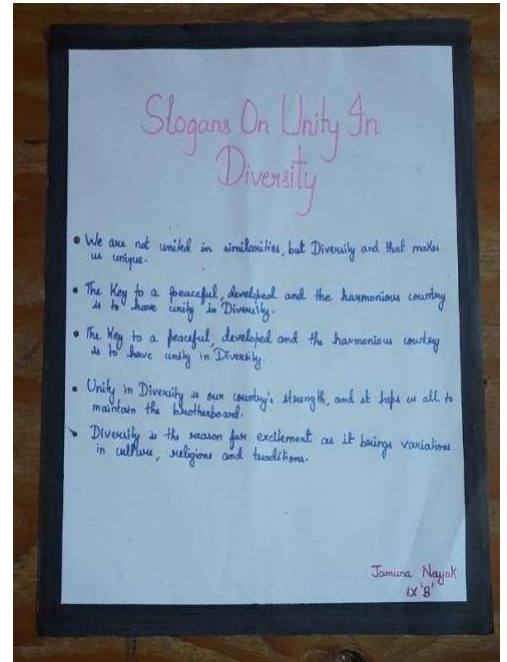 Slogans On Unity In
Diversity
• We are not united in similarities, but Diversity and that makes
us unique.
• The Key to a peaceful, developed and the harmonious country
is to have unity in Diversity.
• The Key to a peaceful, developed and the harmonious country
is to have unity in Diversity.
• Unity in Diversity is our country's strength, and it helps us all to
maintain the brotherboard.
• Diversity is the reason for excitement as it brings variations
in culture, religions and traditions.
Jamuna Nayak
IX 'B'